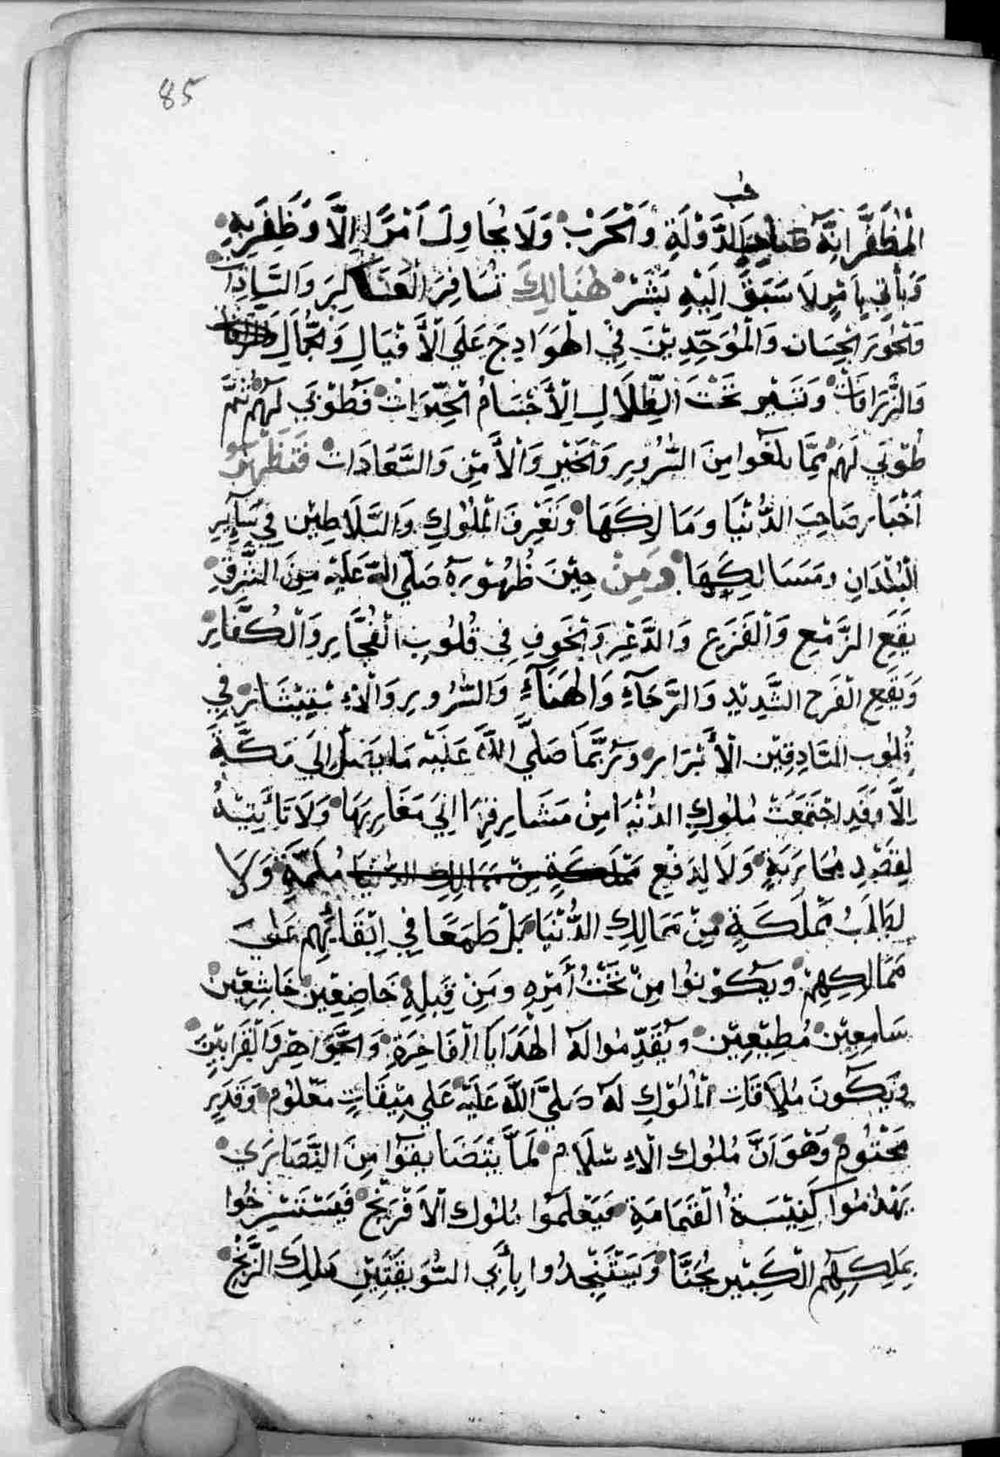 85
الْمُظَفَّرَ اِنَّهُ صَاحِبَ الدَّوْلَةِ وَالْحَرْبْ وَلَا يُحَاوِلَ اَمْرًا اِلَّا وَظَفِرَ بِهِ
وَيَأْتِي بِاَمْرٍ لَا سَبَقَ اِلَيْهِ بَشَرْ هُنَالِكَ تُسَافِرَ الْعَسَاكِرَ وَالسَّادَاتْ
الْحِسَان وَالْمُوَحِّدِيْنَ فِي الْهَوَادِجَ عَلَى الْاَفْيَالِ وَالْجِمَالِ
وَالزَّرَافَاتْ وَتَسِيْر تَحْتَ الظِّلَالِ الْأَجْسَامُ الْخَيِّرَاتْ فَطُوْبَى لَهُمْ ثُمَّ
طُوْبَى لَهُمْ مِمَّا بَلَغُوا مِنَ السُّرُورِ وَالْخَيْرِ وَالْأَمْنِ وَالسَّعَادَاتْ فَتَظْهَرُ
اَخْبَار صَاحِبَ الدُّنْيَا وَمَالِكَهَا وَتَعْرِفَ الْمُلُوكِ وَالسَّلَاطِيْن فِي سَآيِرِ
الْبُلْدَانِ وَمَسَالِكِهَا وَمِنْ حِيْنَ ظُهُوْرِهِ صَلَّى اللهُ عَلَيْهِ مِنَ الشَّرْقِ
يَقَعِ الزَّمْعِ وَالْفَزَعِ وَالذَّعْرِ وَالْخَوفِ فِي قُلُوبِ الْفُجَّارِ وَالْكُفَّارِ
وَيَقَعِ الْفَرَح الشَّدِيْدِ وَالرَّجَآءِ وَالْهَنَآءِ وَالسُّرُورِ وَالْاِسْتِبْشَار فِي
قُلُوبِ الصَّادِقِيْن الْأَبْرَار وَرُبَّمَا صَلَّى اللهُ عَلَيْهِ مَا يَصَلْ اِلَى مَكَّةَ
اِلَّا وَقَدِ اجْتَمَعَتْ مُلُوكِ الدُّنْيَا مِنْ مَشَارِقِهَا اِلَى مَغَارِبِهَا وَلَا تَأْتِيْهُ
لِقَصْدِ مُحَارَبَةٍ وَلَا لِدَفْعِ مَمْلَكَةٍ مِنْ مَمَالِكِ الدُّنْيَا مُلِمَّةٍ وَلَا
لِطَلَبْ مَمْلَكَةٍ مِنْ مَمَالِكِ الدُّنْيَا بَلْ طَمَعًا فِي اِبْقَائِهِم عَلَى
مَمَالِكِهِمْ وَيَكُوْنُوا مِنْ تَحْتْ أَمْرِهِ وَمِنْ قِبَلِهِ خَاضِعِيْن خَاشِعِيْن
سَامِعِيْن مُطِيْعِيْن وَيُقَدِّمُوا لَهُ الْهَدَايَا الْفَاخِرَةِ وَالْجَوَاهِرَ وَالْقَرَابِيْنَ
وَيَكُونَ مُلَاقَات الْمُلُوكِ لَهُ صَلَّى اللهُ عَلَيْهِ عَلَى مِيْقَاتٍ مَعْلُوْمْ وَقَدَرٍ
مَحْتُومْ وَهُوَ اَنَّ مُلُوكِ الْاِسْلَامْ لَمَّا يَتَضَايَقُوا مِنَ النَّصَارَى
يَهْدِمُوا كَنِيْسَةُ الْقَمَامَةِ فَيَعْلَمُوا مُلُوكِ الْاَفْرَنْجْ فَيَسْتَنْشِرِخُوا
بِمَلِكِهِمْ الْكَبِيْر يُحَنَّا وَيَسْتَنْجِدُوا بِأَبِي السُّوَيْقَتَيْنِ مَلِكَ الزَّنْجْ